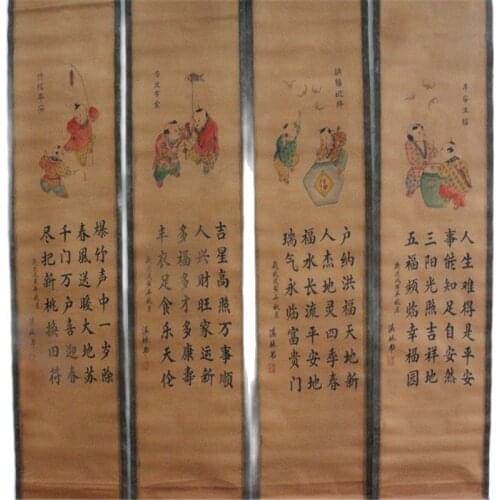 人生难得是平安
事能知足自安然
三阳光照吉祥地
五福频临幸福园
户纳洪福天地新
人杰地灵四季春
福水长流平安地
瑞气永临富贵门
吉星高照万事顺
人兴财旺家运新
多福多才多康寿
丰衣足食乐天伦
竹报平安
爆竹声中一岁除
春風送暖大地苏
千门万户喜迎春
尽把新桃换旧符